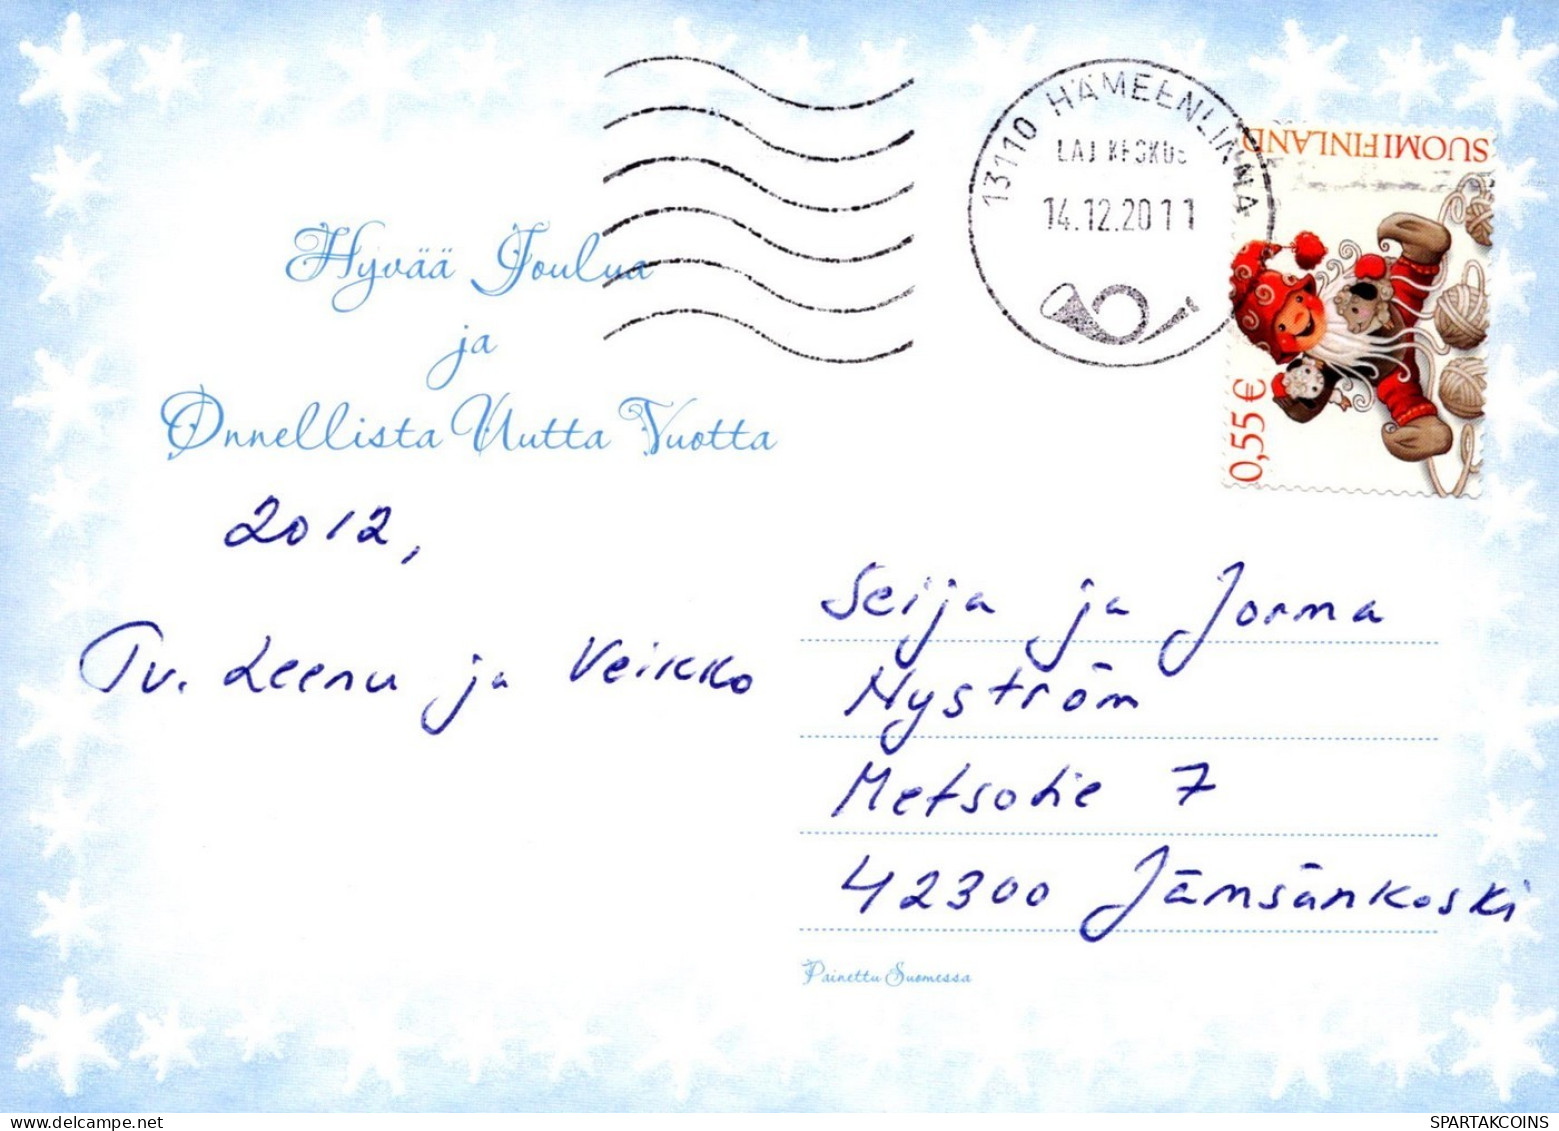 13110 HÄMEENLINNA
LAJ KESKUS
14.12.2011
SUOMI FINLAND
0,55 €
Hyvää Joulua
ja
Onnellista Uutta Vuotta
2012,
Tv. Leenu ja Veikko
Seija ja Jorma
Nyström
Metsotie 7
42300 Jämsänkoski
Painettu Suomessa
delcampe.net
SPARTAKCOINS